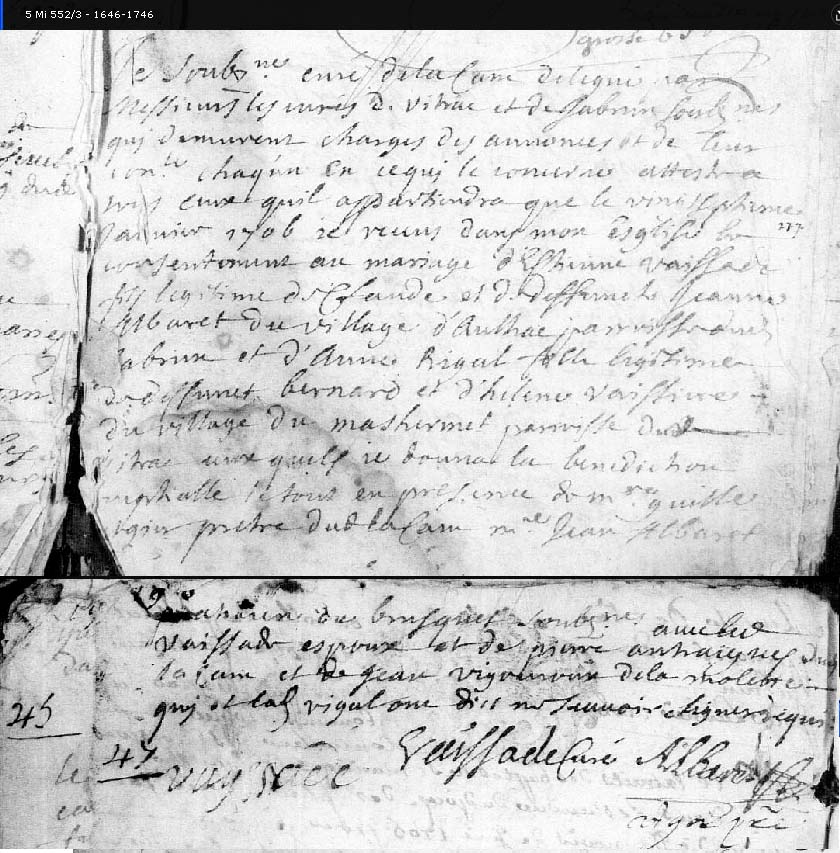 5 Mi 552/3 - 1646-1746
Je soubs.ne curé de la Cam delegué par
Messieurs les curés de vitrac et de labrun soubs nes
qui demurent charges des annonces et de leur
chaqun en cequi le concerne atteste a
tous ceux quil appartiendra que le vingt septieme
Janvier 1706 je receus dans mon Esglise le
consentement au mariage d'Estienne vaissade
fils legitime de Claude et de deffunte Jeanne
Albaret du village d'Aulhac parroisse
labrun et d'Anne Rigal fille legitime
de deffunct bernard et d'helene vaissiere
du village du mashermet parroisse dud
vitrac auxquels je donna la benediction
nuptialle le tout en presence de mre guille
vigier pretre dud lacam me Jean Albaret
de brusquet soubs nes avec led
vaissade espoux et de pierre antraigues dud
lacam et de jean vigouroux de la
qui et lad rigal ont dict ne scavoir signer requis
45
47
Vaissade Curé Albaret
vigier ptre